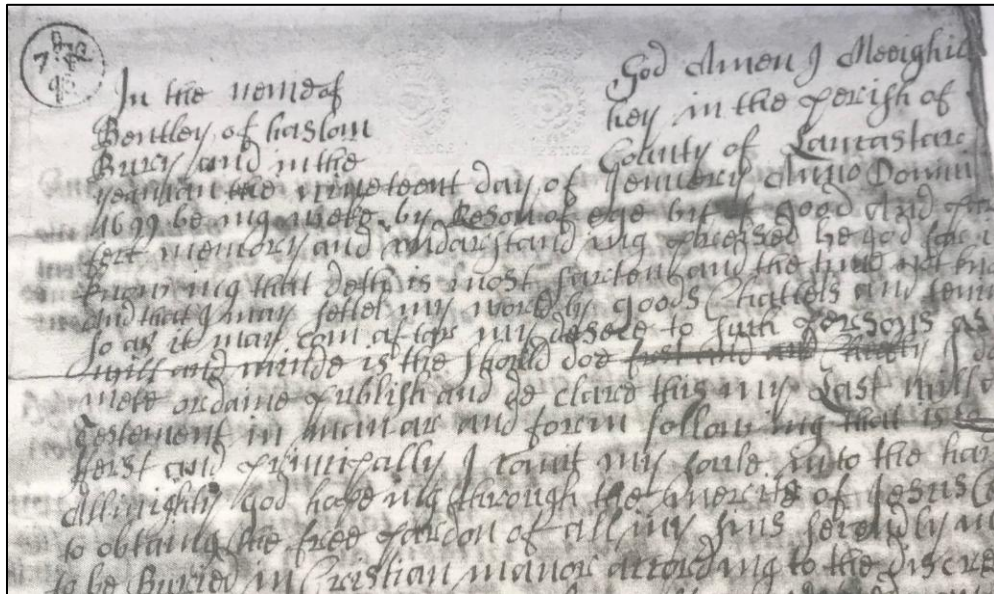 In the neme of God Amen I
Bentley of haslom hey in the perish of
Bury and in the County of Lancastar
yeaman the nineteent day of Jenuery Anno Domini
1699 being weke by Reson of ege but of good And
fect memory and undarstand ing preased be god for
know ing that deth is most sarten and the time not
And that I may settel my wordly goods Chattels and
so as it may com aftar my desese to such persons as
will and minde is the should doe I
meke ordaine publish and de clare this my Last will
Testement in manar and form follow ing that is to
ferst and prinsipally I comit my soule into the
Allmighty god hope ing through the mercits of Jesus
to obtaing the free pardon of all my sins
to be Buried in Cristian manor according to the discre